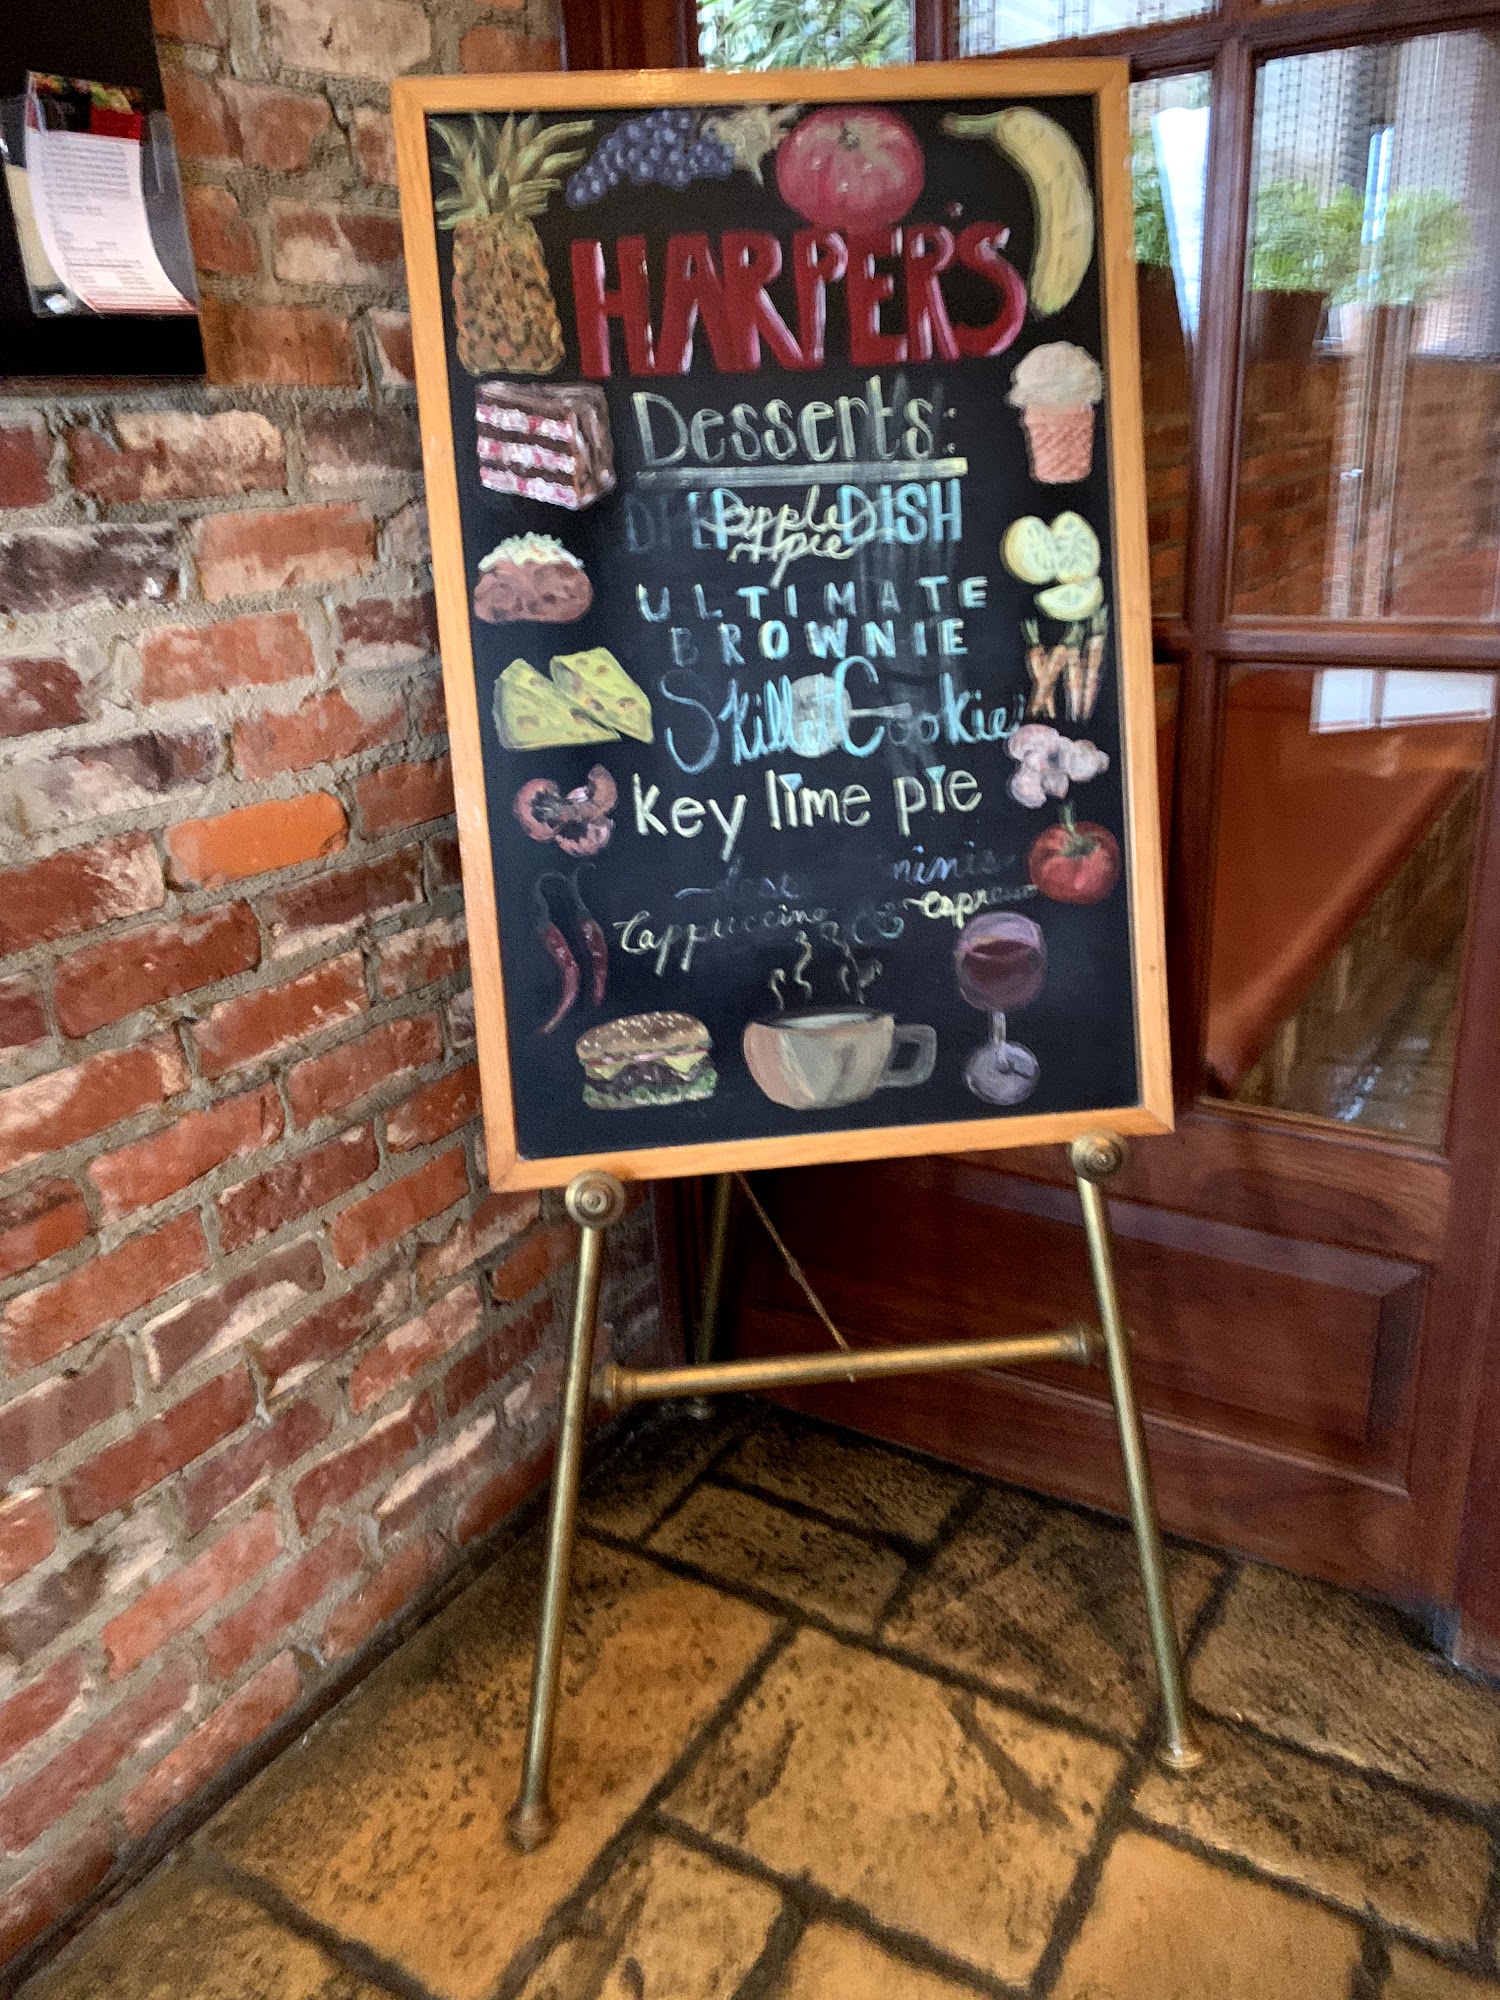 HARPER'S
Desserts:
DEEP DISH
Apple
pie
ULTIMATE
BROWNIE
Skillet Cookie
key lime pie
minis
Cappuccino & espresso